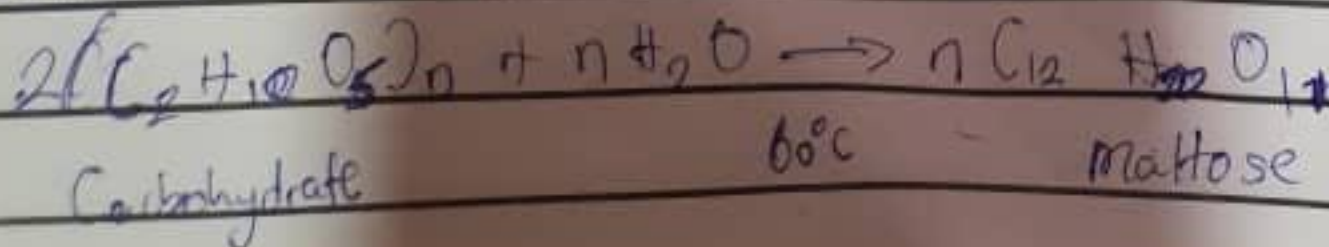 2(C₂H₁₀O₅)n + nH₂O → nC₁₂H₂₂O₁₁
60°C
Carbohydrate Maltose